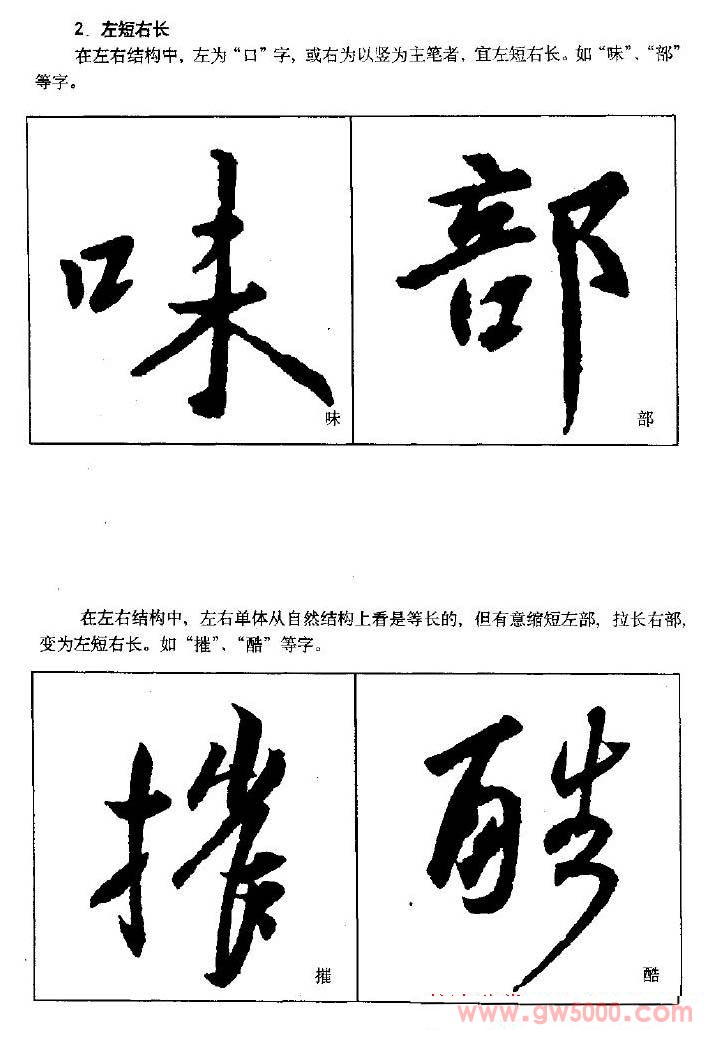 2. 左短右长
在左右结构中，左为“口”字，或右为以竖为主笔者，宜左短右长。如“味”、“部”
等字。
味 部
味 部
在左右结构中，左右单体从自然结构上看是等长的，但有意缩短左部，拉长右部，
变为左短右长。如“摧”、“酷”等字。
摧 酷
摧 酷
www.gw5000.com